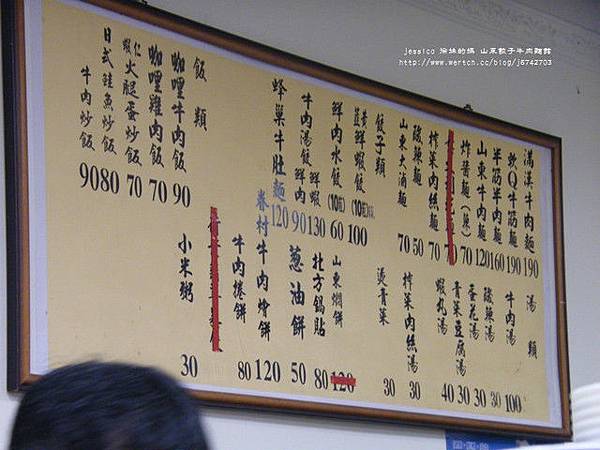 Jessico 滄妹的媽 山東餃子牛肉麵館
http://www.wertch.cc/blog/j6742703
滿漢牛肉麵 190
軟Q牛筋麵 190
半筋半肉麵 160
山東牛肉麵 120
炸醬麵(乾) 70
榨菜肉絲麵 70
酸辣麵 50
山東大滷麵 70
餃子類
韭黃鮮蝦餃(10粒) 100
鮮肉水餃(10粒) 60
牛肉湯餃 鮮蝦 130
鮮肉 90
蜂巢牛肚麵 120
飯類
咖哩牛肉飯 90
咖哩雞肉飯 70
蝦仁火腿蛋炒飯 70
日式鮭魚炒飯 80
牛肉炒飯 90
湯類
牛肉湯 100
酸辣湯 30
蛋花湯 30
青菜豆腐湯 30
蝦丸湯 40
榨菜肉絲湯 30
燙青菜 30
山東燜餅 120
北方鍋貼 80
蔥油餅 50
眷村牛肉燴餅 120
牛肉捲餅 80
小米粥 30